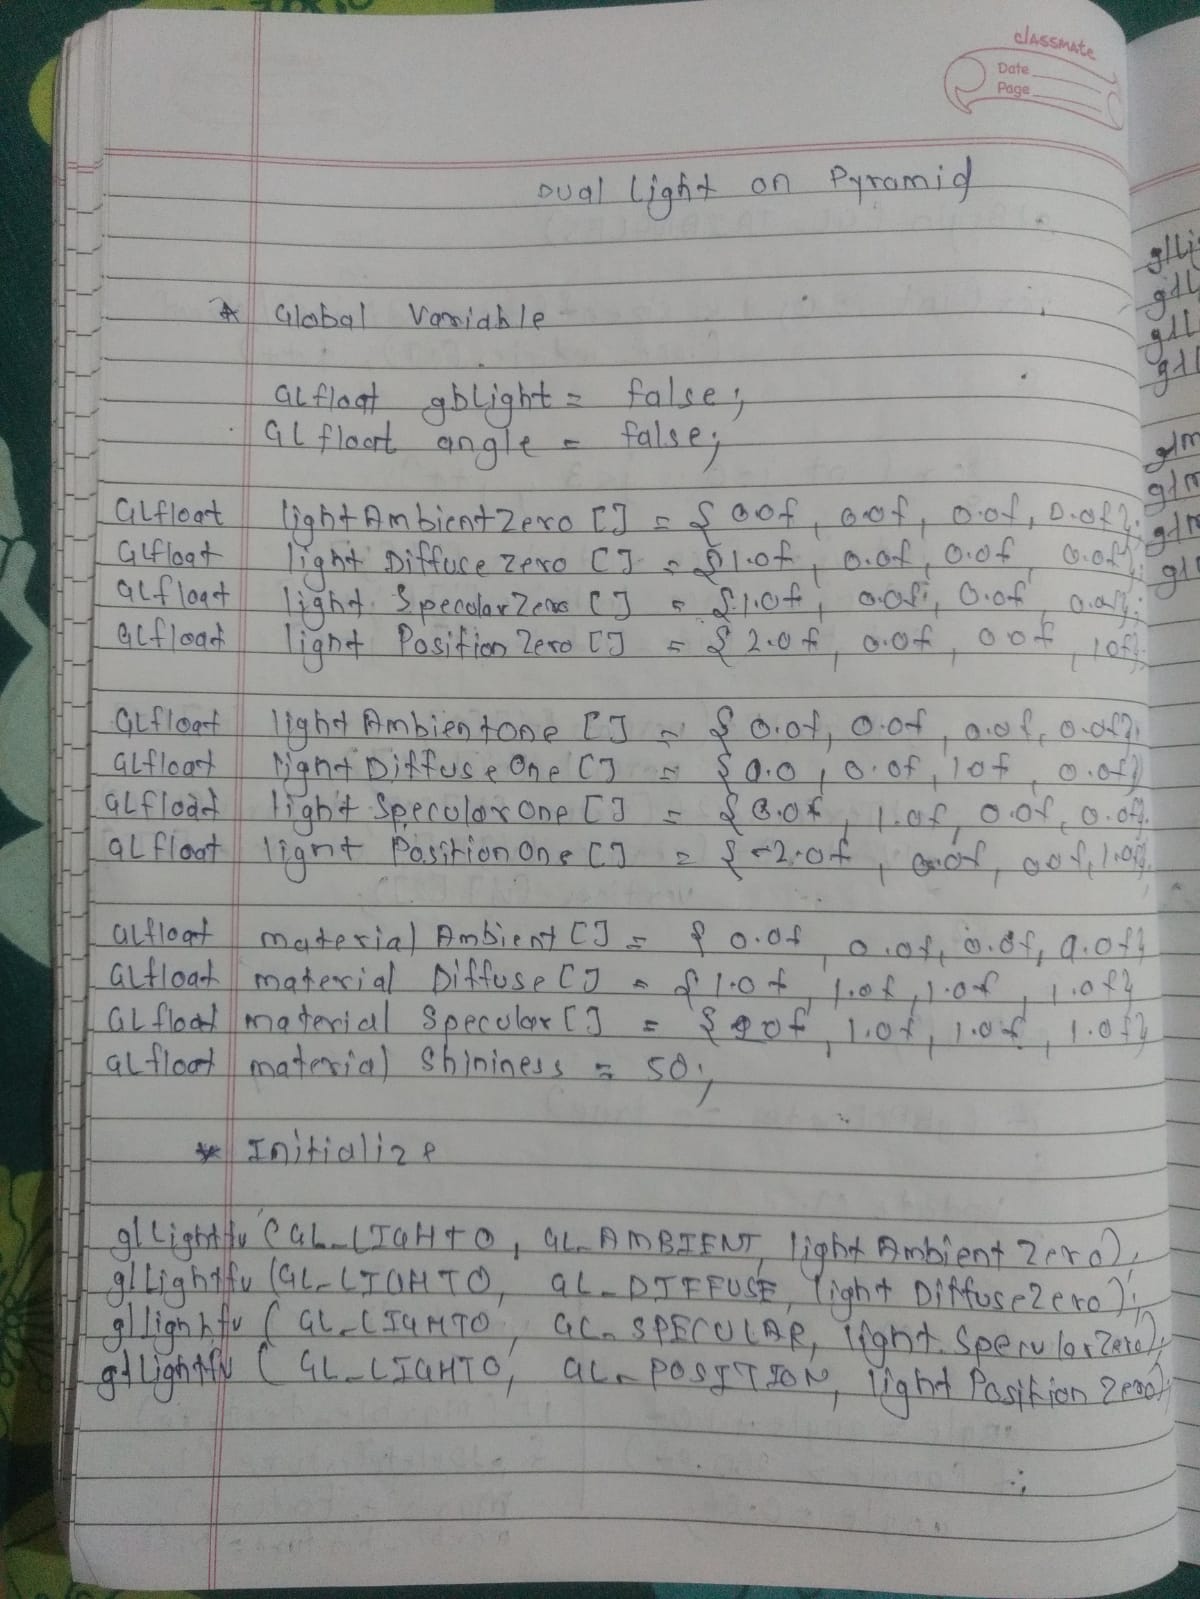 classmate
Date
Page
Dual Light on Pyramid
* Global Variable
GLfloat gbLight = false;
GLfloat angle = false;
GLfloat lightAmbientZero [] = { 0.0f, 0.0f, 0.0f, 0.0f};
GLfloat light Diffuce Zero [] = {1.0f, 0.0f, 0.0f, 0.0f};
GLfloat light SpecolarZero [] = {1.0f, 0.0f, 0.0f, 0.0f};
GLfloat light Position Zero [] = { 2.0f, 0.0f, 0.0f, 1.0f};
GLfloat light AmbientOne [] = { 0.0f, 0.0f, 0.0f, 0.0f};
GLfloat light Diffuse One [] = { 0.0, 0.0f, 1.0f, 0.0f}
GLfloat light SpecolarOne [] = { 0.0f, 1.0f, 0.0f, 0.0f}
GLfloat light PositionOne [] = { -2.0f, 0.0f, 0.0f, 1.0f}
GLfloat material Ambient [] = { 0.0f, 0.0f, 0.0f, 0.0f}
GLfloat material Diffuse [] = { 1.0f, 1.0f, 1.0f, 1.0f}
GLfloat material Specular [] = { 1.0f, 1.0f, 1.0f, 1.0f}
GLfloat material Shininess = 50;
* Initialize
glLightfv (GL_LIGHT0, GL_AMBIENT, light Ambient Zero);
glLightfv (GL_LIGHT0, GL_DIFFUSE, light DiffuseZero);
glLightfv (GL_LIGHT0, GL_SPECULAR, light SpecularZero);
glLightfv (GL_LIGHT0, GL_POSITION, light Position Zero);